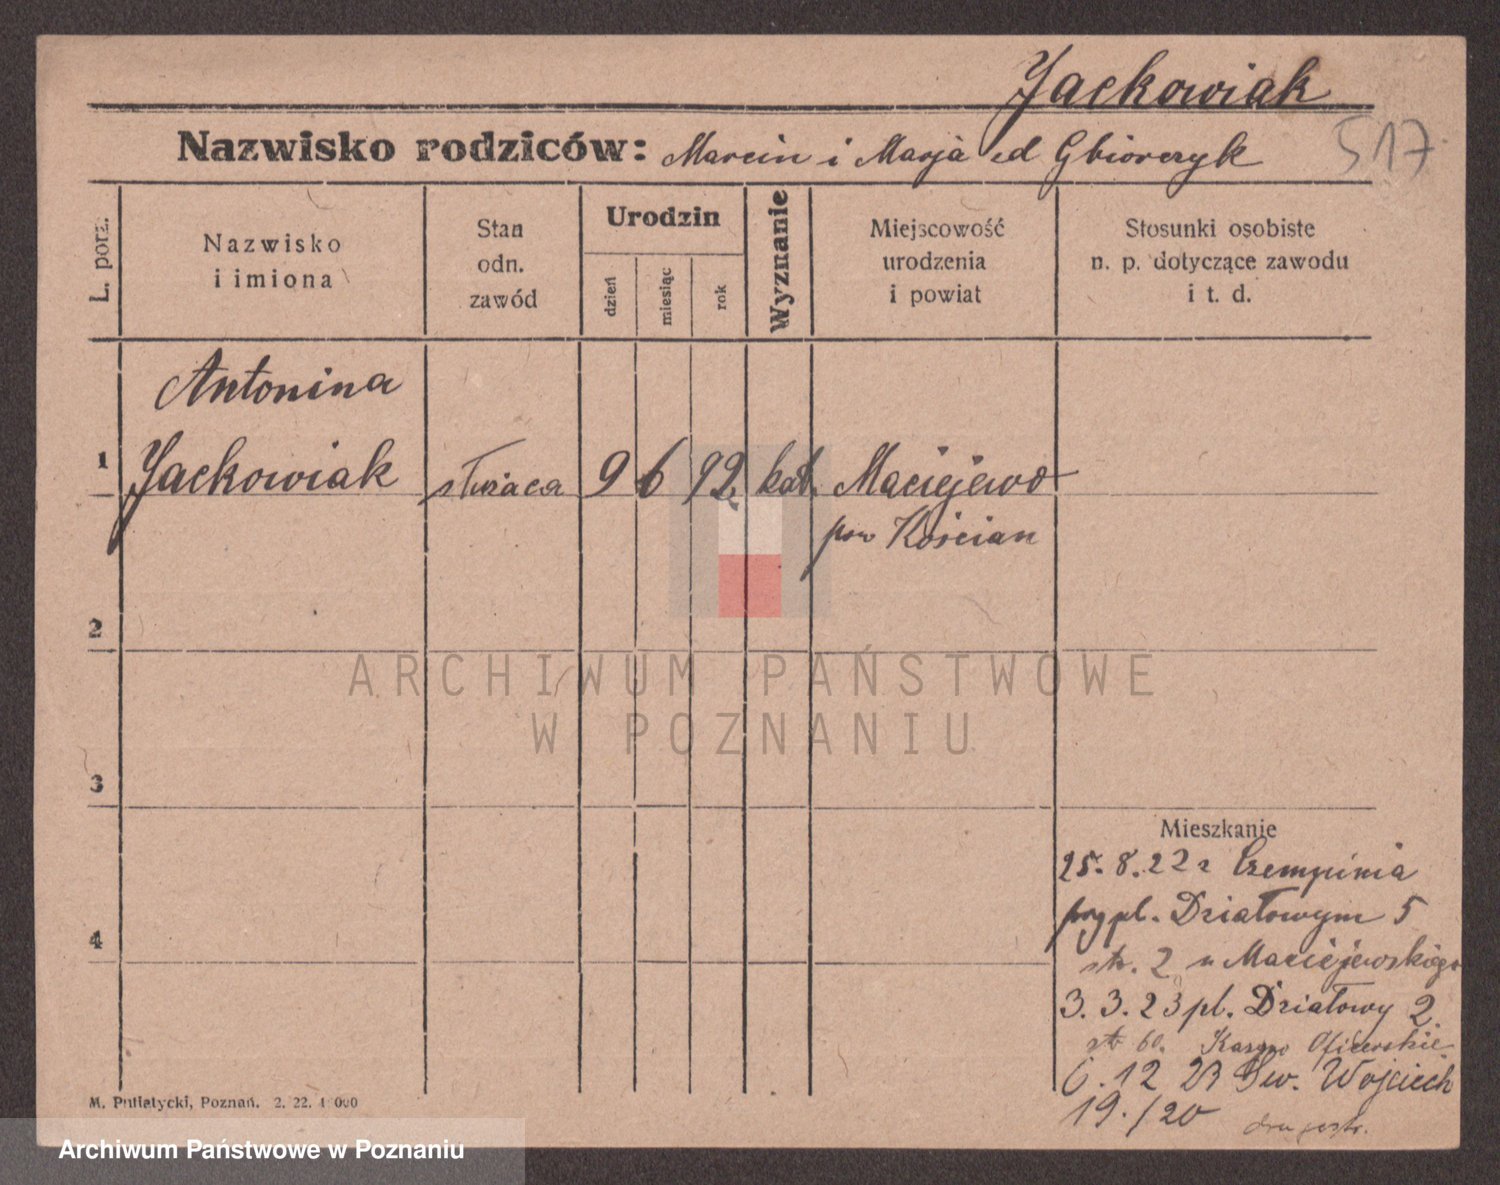 Jackowiak
Nazwisko rodziców: Marcin i Marja Gbiorczyk
517
L. porz.
Nazwisko i imiona
Stan odn. zawód
Urodzin
dzień
miesiąc
rok
Wyznanie
Miejscowość urodzenia i powiat
Stosunki osobiste n. p. dotyczące zawodu i t. d.
Antonina
1 Jackowiak służąca 9 6 92 kat. Maciejewo
pow Kościan
2
3
4
Mieszkanie
25.8.22 z Czempinia
przy pl. Działowym 5
str. 2 u Maciejewskiego
3.3.23 pl. Działowy 2
60. Kasyno Oficerskie
6.12 23 Św. Wojciech
19./20
M. Putiatycki, Poznań. 2. 22. 4 000
ARCHIWUM PAŃSTWOWE
W POZNANIU
Archiwum Państwowe w Poznaniu